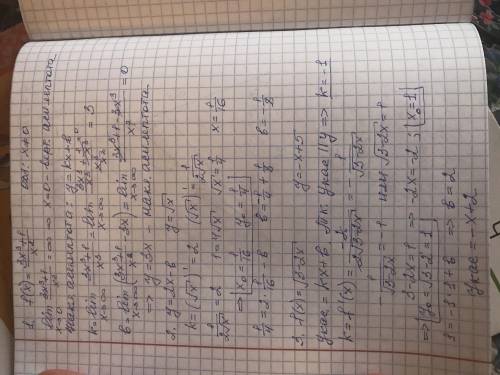 1. f(x) = (3x³+1)/x²   ООН: x≠0
lim x→0 (3x³+1)/x² = ∞ ⇒ x=0 - верт. асимптота
накл асимптота: y = kx+b
k = lim x→∞ (3x³+1)/x³ = lim x→∞ (3x³/x³ + 1/x³)/(x³/x³) = 3
b = lim x→∞ ((3x³+1)/x² - 3x) = lim x→∞ (3x³+1-3x³)/x² = 0
⇒ y = 3x - накл асимптота.
2. y = 2x-b   y = √x
k = (√x)' = 2   (√x)' = 1/(2√x)
1/(2√x) = 2   1 = 4√x   √x = 1/4   x = 1/16
⇒ x₀ = 1/16   y₀ = 1/4
1/4 = 2·1/16 - b   b = -1/4 + 1/8   b = -1/8
3. f(x) = √(3-2x)   y = -x+5
yкас = kx+b   т.к. yкас || y ⇒ k = -1
k = f'(x) = -2/(2√(3-2x)) = -1/√(3-2x)
-1/√(3-2x) = -1   или √(3-2x) = 1
3-2x = 1 ⇒ -2x = -2; x₀ = 1
⇒ y₀ = √(3-2) = 1
1 = -1·1+b ⇒ b = 2
yкас = -x+2